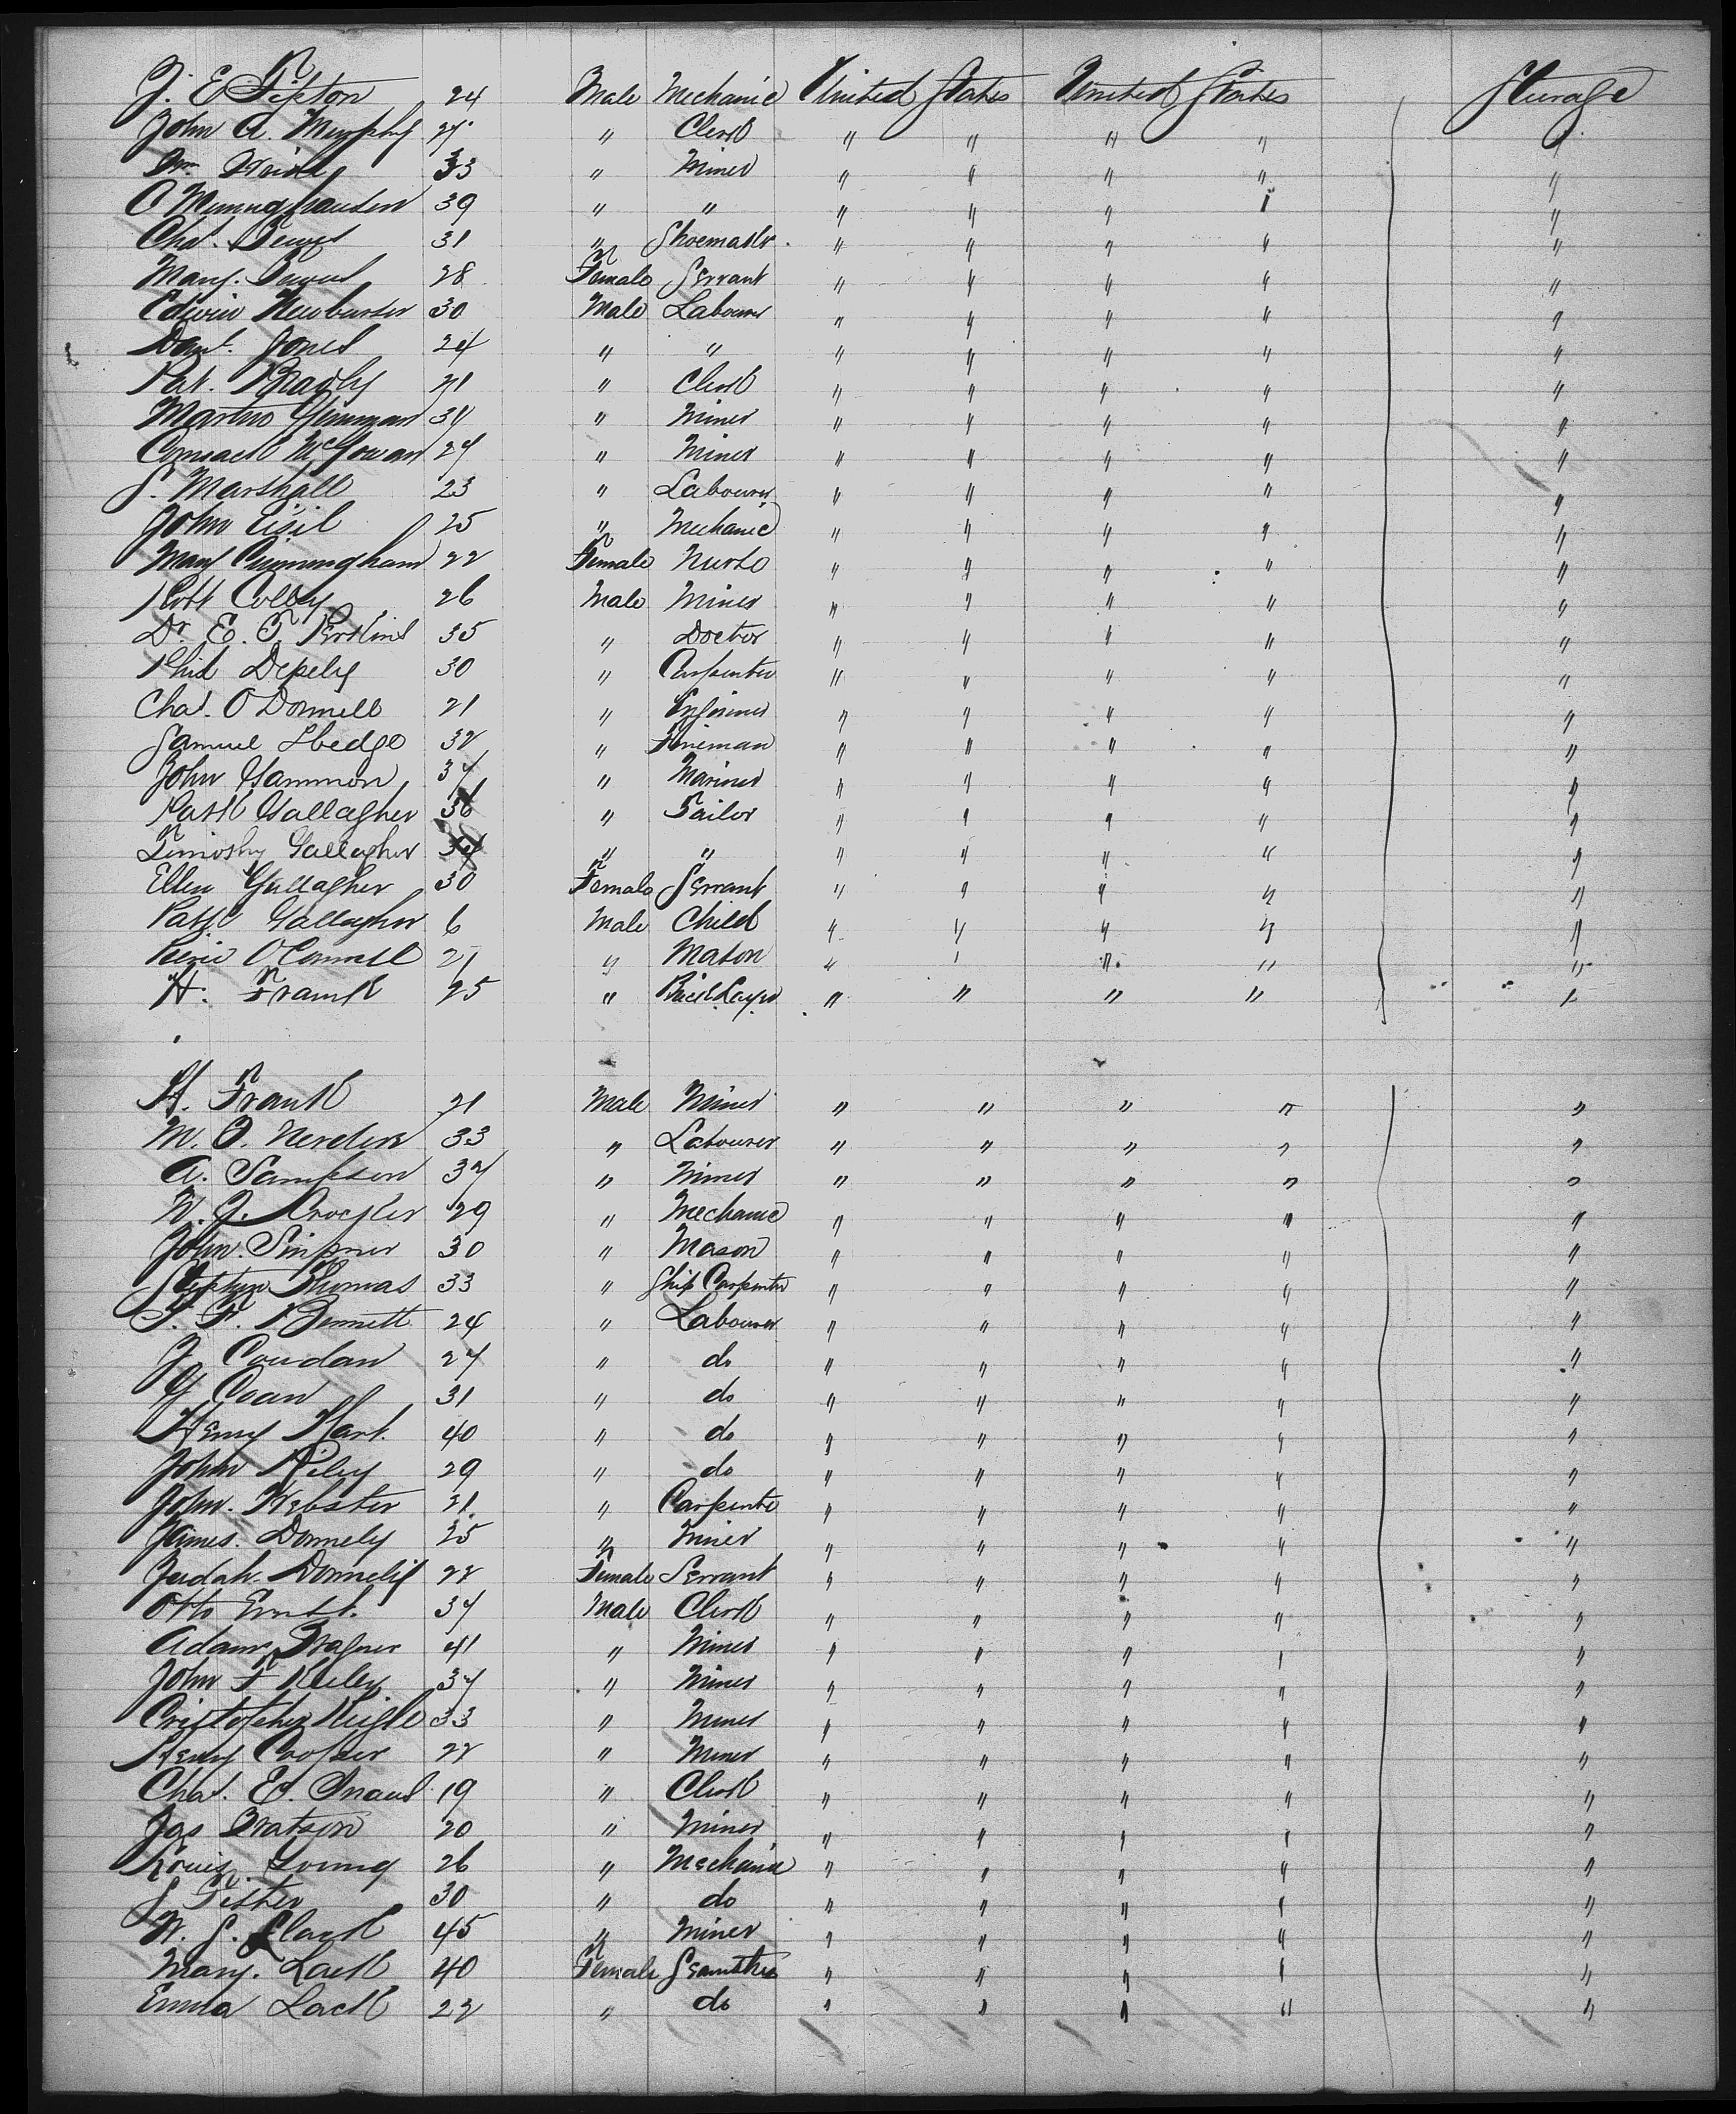 J. E. Tipton 24 Male Mechanic United States United States Steerage
John A. Murphy " Clerk " " " " "
Wm. 33 " Miner " " " " "
O Munnghausen 39 " " " " " " "
Chas. 31 " Shoemaker " " " " "
Mary. 28 Female Servant " " " " "
Edwin Newburser 30 Male Labourer " " " " "
Danl. Jones 24 " " " " " " "
Pat. Brady 21 " Clerk " " " " "
Martin " Miner " " " " "
McGowan 24 " Miner " " " " "
S. Marshall 23 " Labourer " " " " "
John 25 " Mechanic " " " " "
Mary Cunningham 22 Female Nurse " " " " "
Robt Colby 26 Male Miner " " " " "
Dr. E. T. Perkins 35 " Doctor " " " " "
Phil Depely 30 " Carpenter " " " " "
Chas. O Donnell 21 " Engineer " " " " "
Samuel 32 " Fireman " " " " "
John Gammon 34 " Mariner " " " " "
Patk Gallagher 36 " Tailor " " " " "
Timothy Gallagher " " " " " " "
Ellen Gallagher 30 Female Servant " " " " "
Patk Gallagher 6 Male Child " " " " "
O Connell 21 " Mason " " " " "
H. Frank 25 " Brick Layer " " " " "
H. Frank 21 Male Miner " " " " "
M. 33 " Labourer " " " " "
A. Sampson 34 " Miner " " " " "
W. J. 29 " Mechanic " " " " "
John. 30 " Mason " " " " "
Stephen Thomas 33 " Ship Carpenter " " " " "
T. F. Bennett 24 " Labourer " " " " "
J Condan 27 " do " " " " "
Coan 31 " do " " " " "
Henry Hart. 40 " do " " " " "
John Riley 29 " do " " " " "
John. Webster 21. " Carpenter " " " " "
James. Donnely 25 " Miner " " " " "
Judah. Donnely 22 Female Servant " " " " "
Otto Ernst. 34 Male Clerk " " " " "
Adam Wagner 41 " Miner " " " " "
John F Kelley 34 " Miner " " " " "
Cristopher 33 " Miner " " " " "
Henry Cooper 22 " Miner " " " " "
Chas. Ed. 19 " Clerk " " " " "
Jas Watson 20 " Miner " " " " "
Louis Young 26 " Mechanic " " " " "
J Fisher 30 " do " " " " "
W. S. Slack 45 " Miner " " " " "
Mary. Lack 40 Female Seamstress " " " " "
Emma Lack 22 " do " " " " "